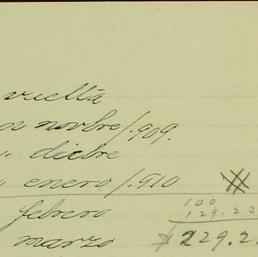 vuelta
a novbre/.909.
" dicbre
" enero/.910
febrero 100
129.23
marzo $229.2